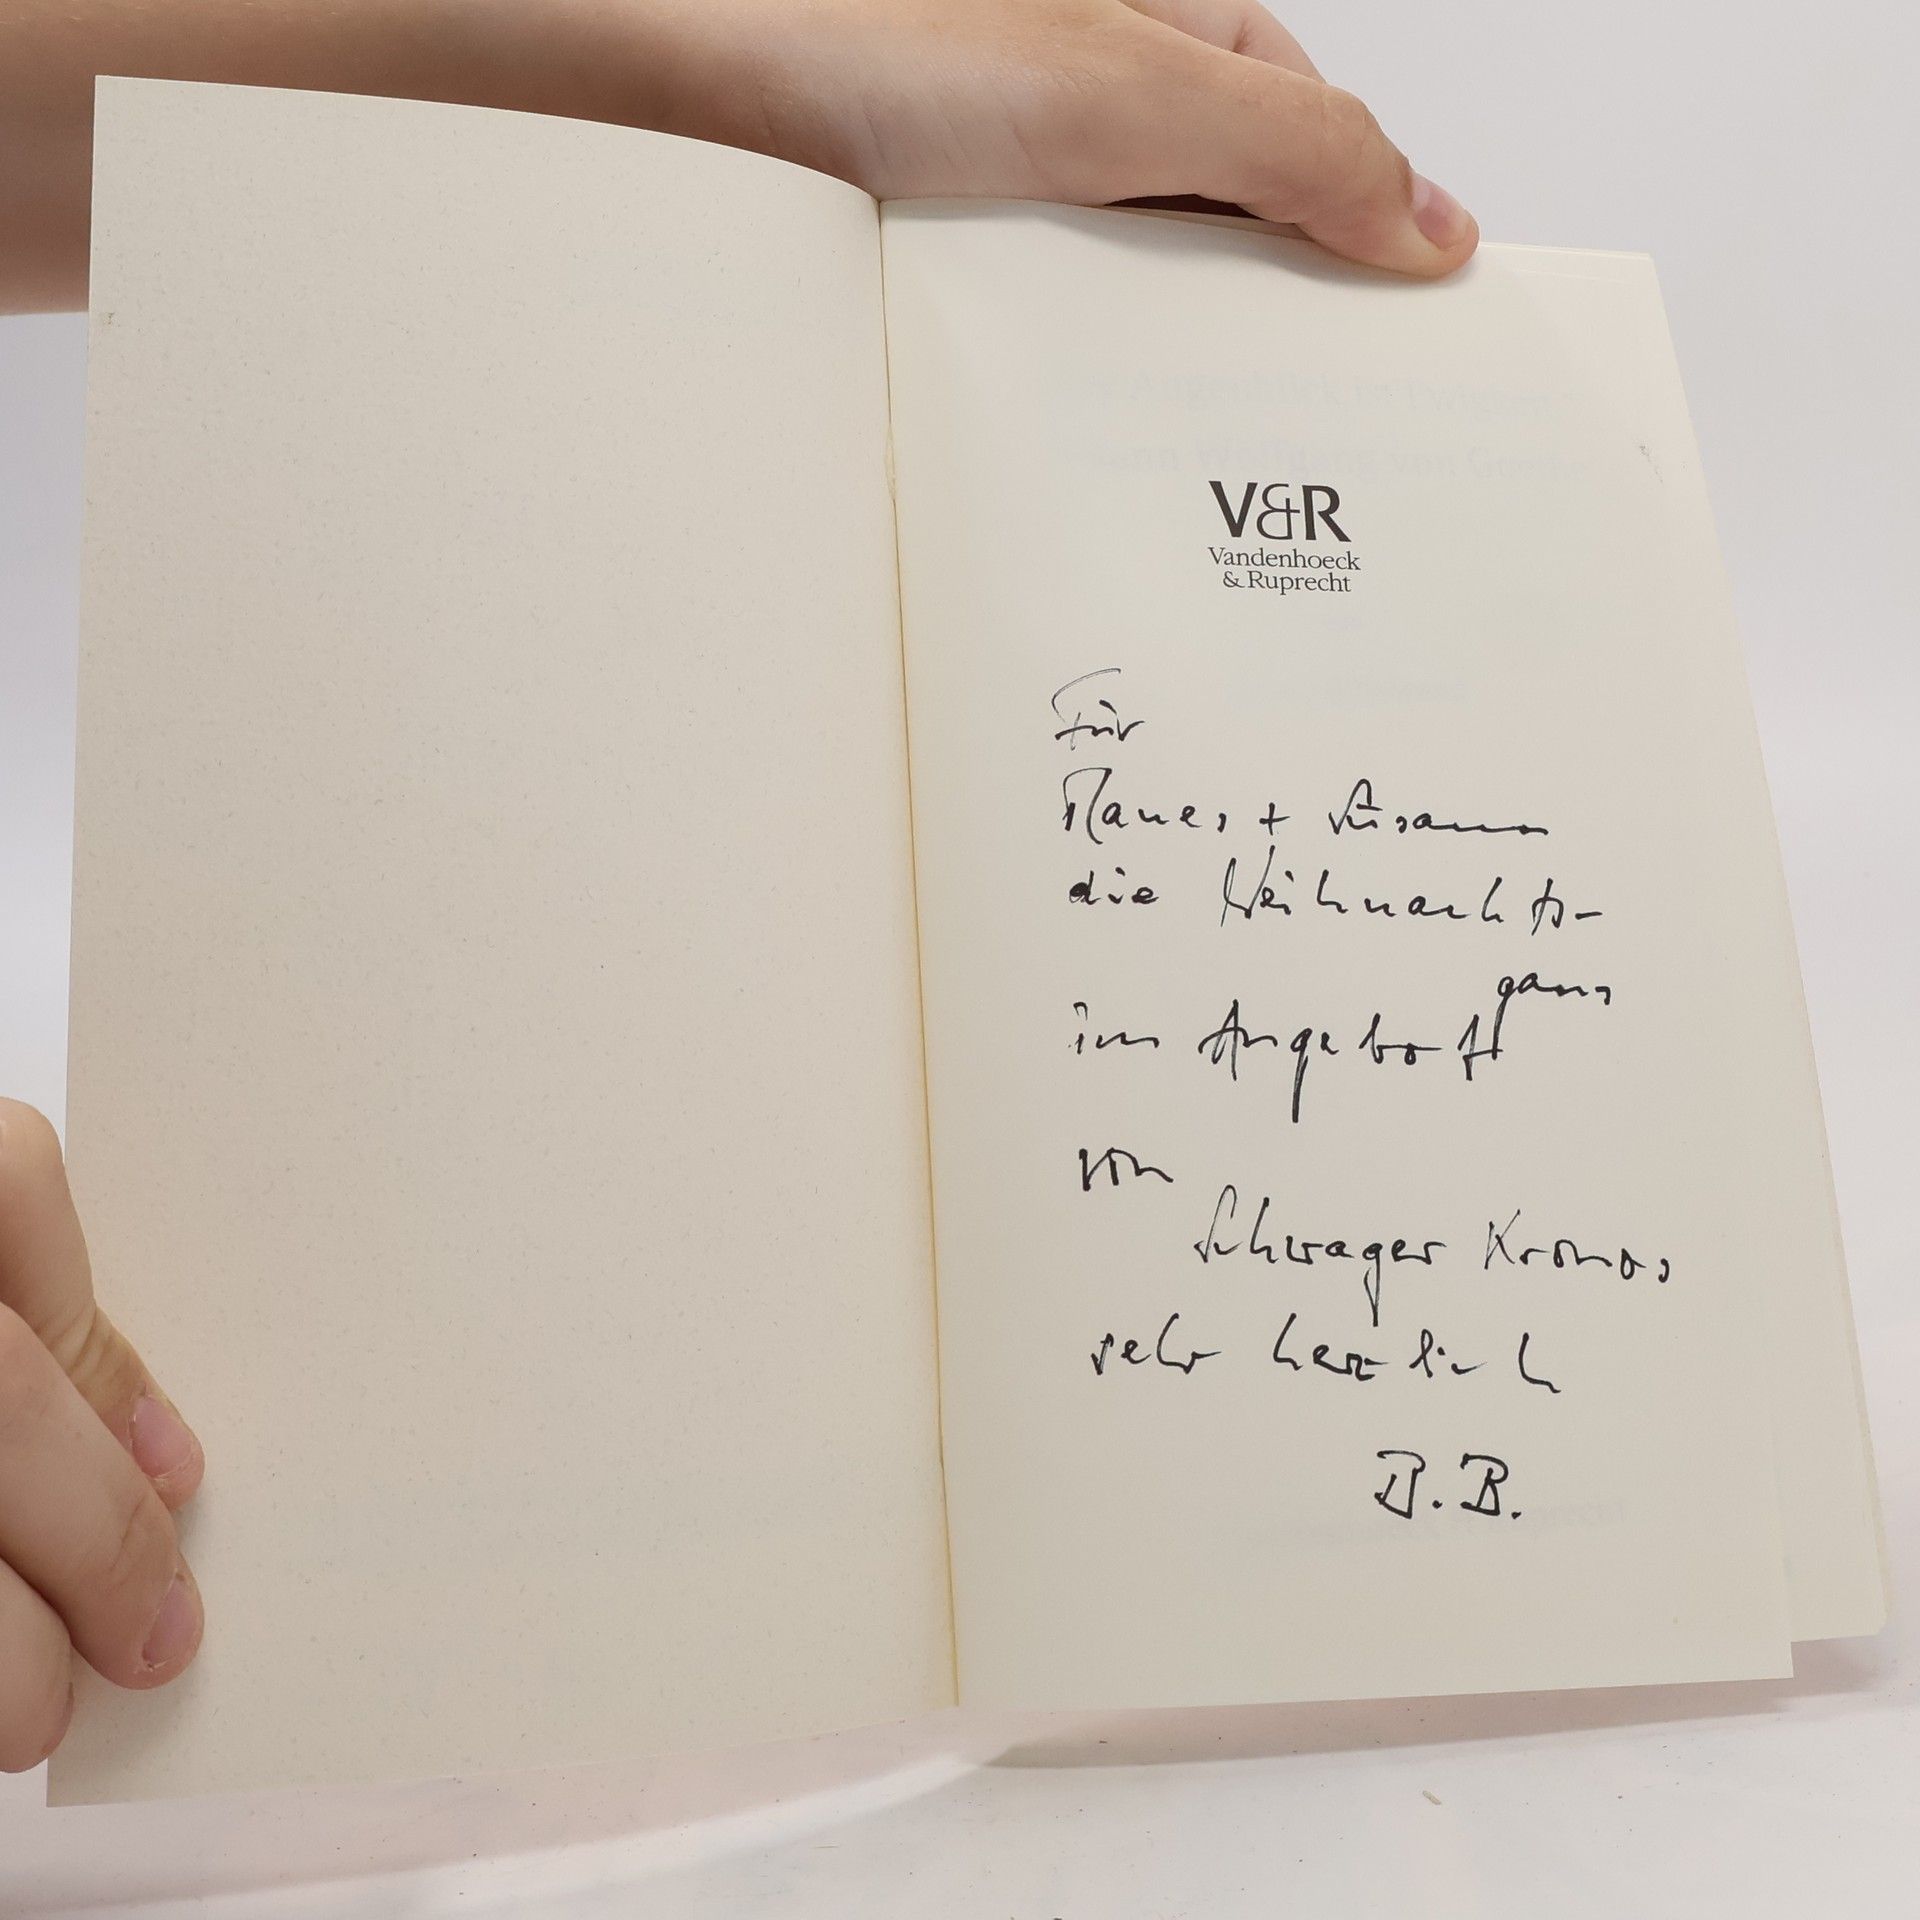 V&R
Vandenhoeck
& Ruprecht
Für
+
die Weihnachts-
gans
im Angebot
von
Schwager Kronos
sehr herzlich
B.B.